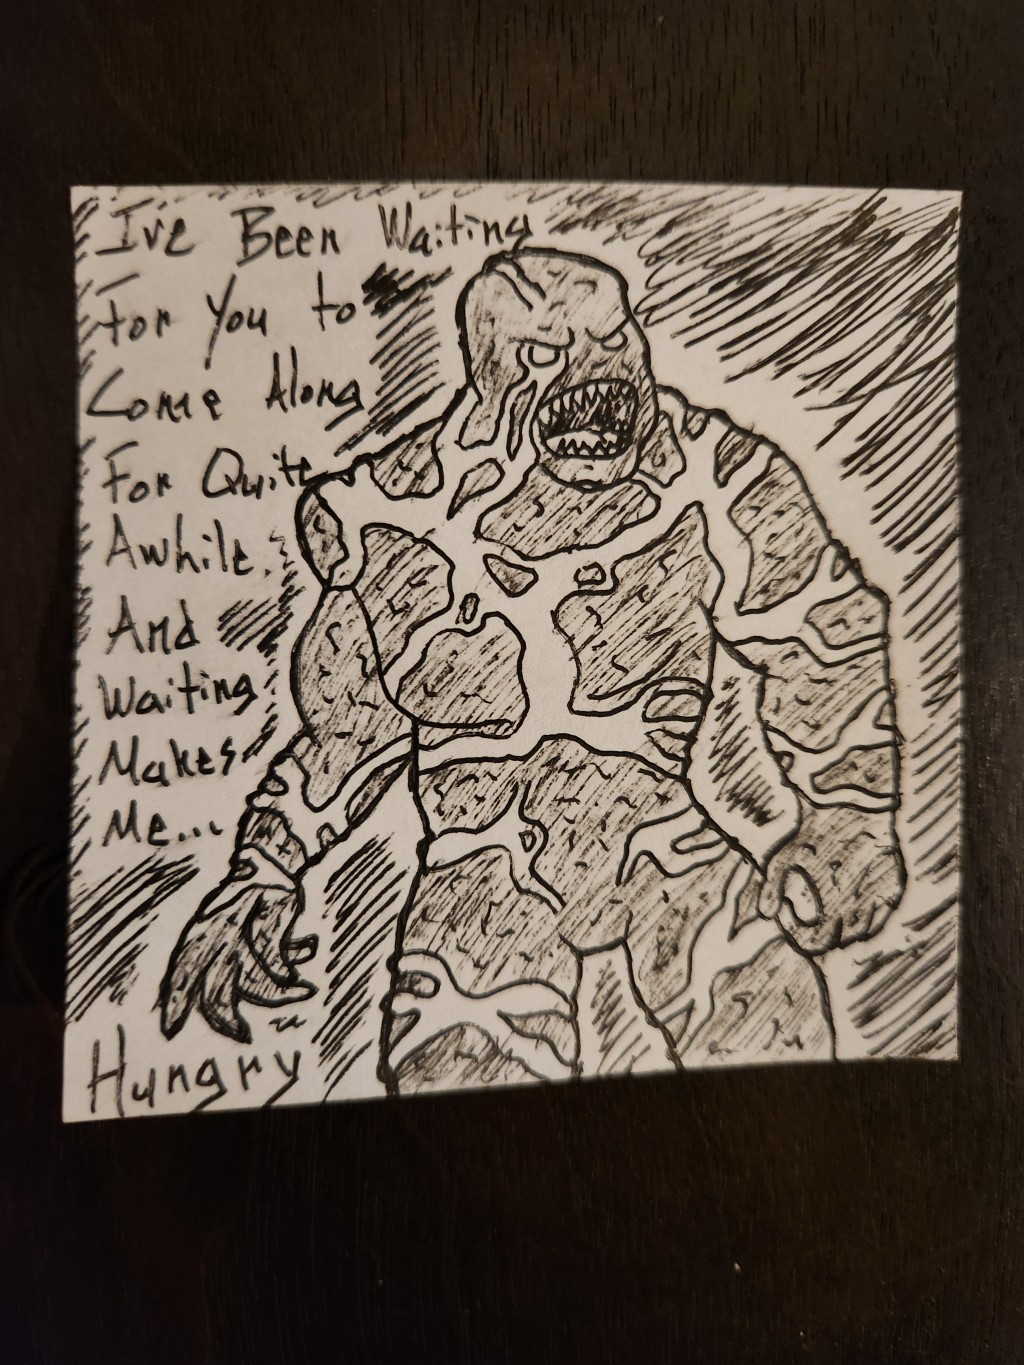 I've Been Waiting
For You to
Come Along
For Quite
Awhile.
And
Waiting
Makes
Me...
Hungry